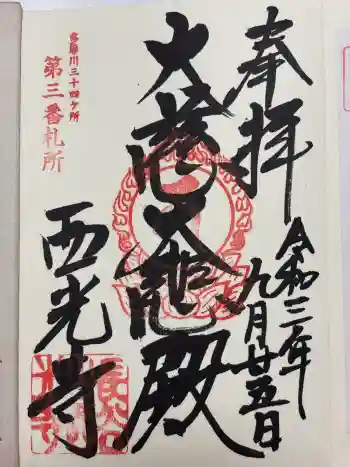 奉拝
令和三年
九月廿五日
大悲大慈殿
西光寺
多摩川三十四ヶ所
第三番札所